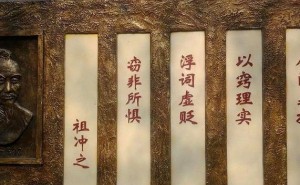 以窍理实
浮词虚贬
窃非所惧
祖冲之